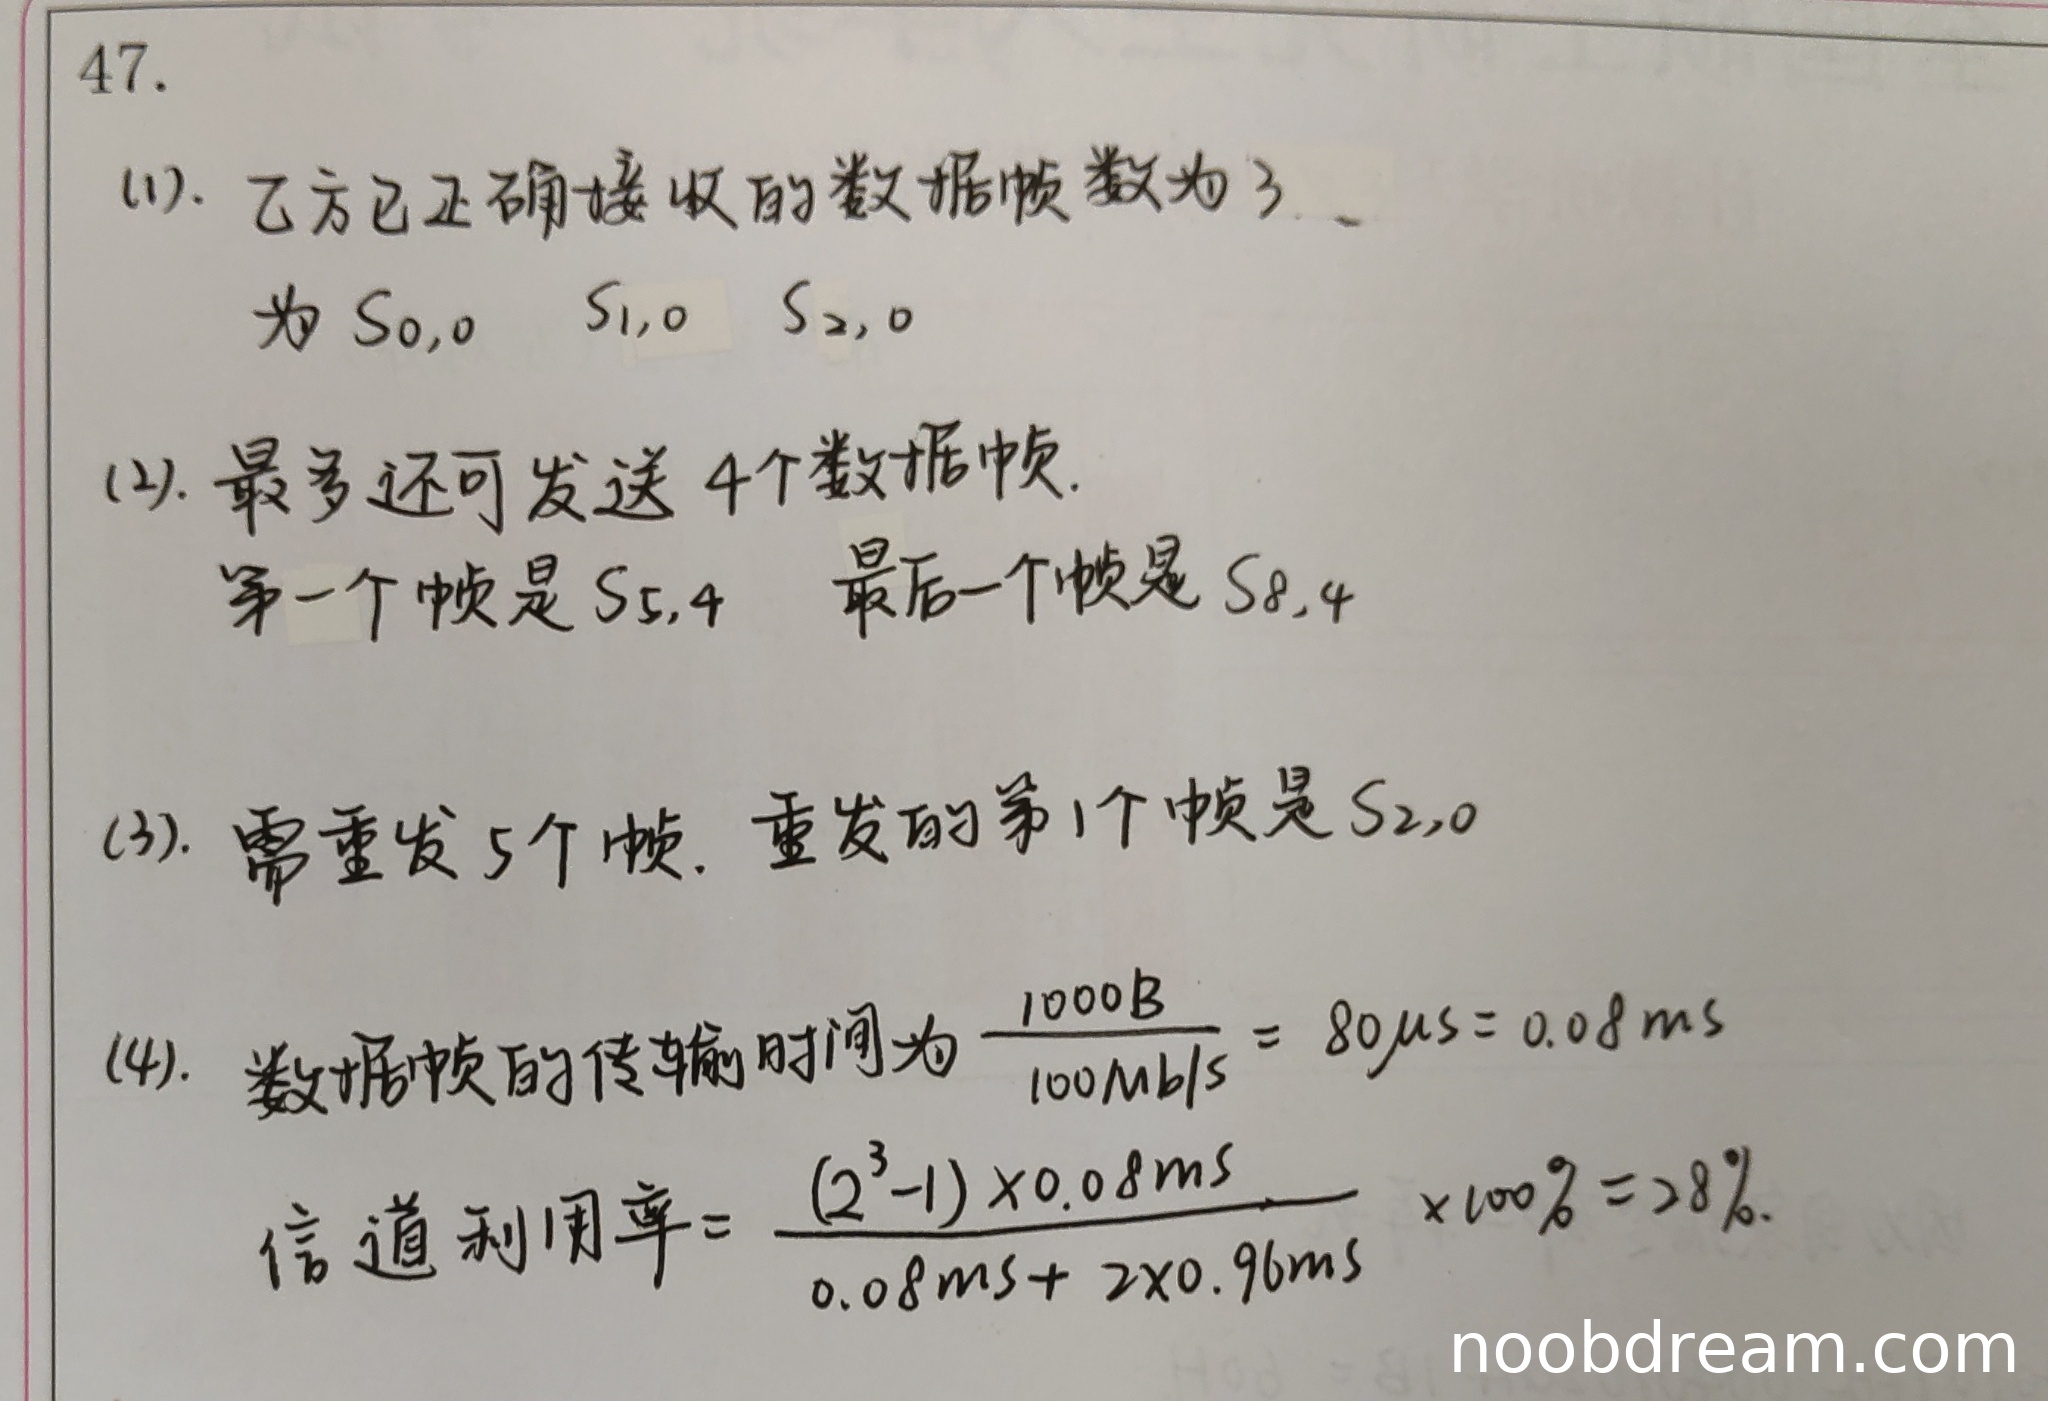 47.
(1). 乙方已正确接收的数据帧数为3
为 S0,0 S1,0 S2,0
(2). 最多还可发送 4个数据帧.
第一个帧是 S5,4 最后一个帧是 S8,4
(3). 需重发 5个帧. 重发的第1个帧是 S2,0
(4). 数据帧的传输时间为 1000B/100Mb/s = 80μs = 0.08ms
信道利用率 = (2³-1)×0.08ms/0.08ms+2×0.96ms ×100% = 28%.
noobdream.com